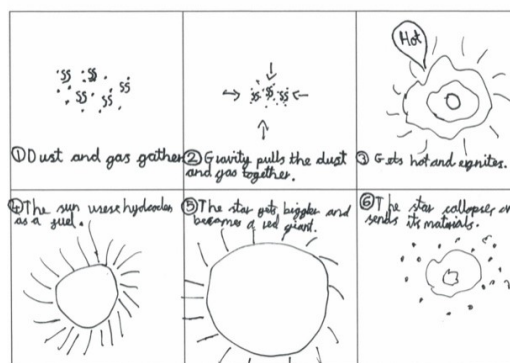 Hot
① Dust and gas gather
② Gravity pulls the dust
and gas together.
③ Gets hot and egnites.
④ The sun uses hydrocles
as a fuel.
⑤ The star gets bigger and
becomes a red giant.
⑥ The star callopses or
sends its materials.